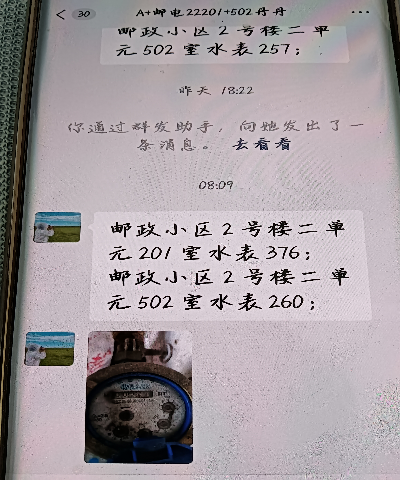 30
A+邮电22201+502丹丹
邮政小区2号楼二单
元502室水表257;
昨天 18:22
你通过群发助手，向她发出了一
条消息。 去看看
08:09
邮政小区2号楼二单
元201室水表376;
邮政小区2号楼二单
元502室水表260;